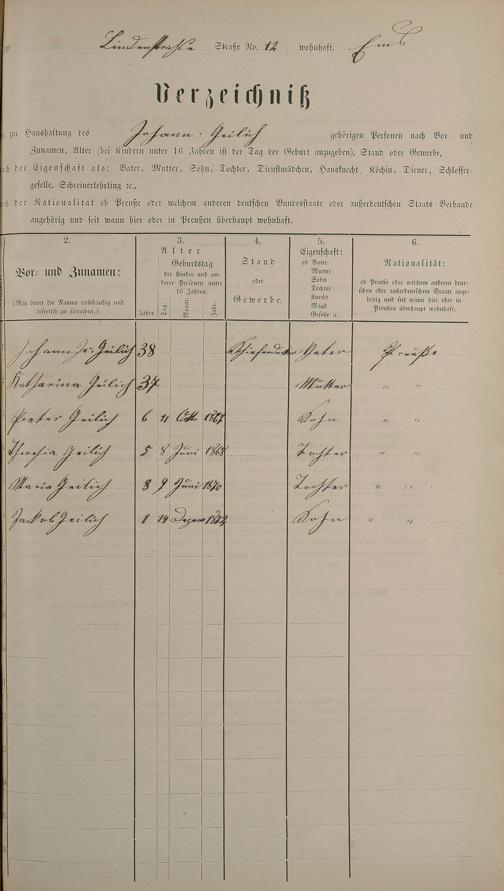 Lindenstraße Straße No. 12, wohnhaft. Ems
Verzeichniß
zur Haushaltung des Johann Geilich gehörigen Personen nach Vor- und
Zunamen, Alter (bei Kindern unter 16 Jahren ist der Tag der Geburt anzugeben), Stand oder Gewerbe,
der Eigenschaft als: Vater, Mutter, Sohn, Tochter, Dienstmädchen, Hausknecht, Köchin, Diener, Schlosser-
geselle, Schreinerlehrling ꝛc.,
der Nationalität ob Preuße oder welchem anderen deutschen Bundesstaate oder außerdeutschen Staats-Verbande
angehörig und seit wann hier oder in Preußen überhaupt wohnhaft.
2. 3. 4. 5. 6.
Vor- und Zunamen:
(Man bittet die Namen vollständig und
leserlich zu schreiben.)
Alter
Geburtstag
der Kinder und an-
derer Personen unter
16 Jahren.
Jahre. Tag. Monat. Jahr.
Stand
oder
Gewerbe.
Eigenschaft:
ob Vater
Mutter
Sohn
Tochter
Knecht
Magd
Geselle ꝛc.
Nationalität:
ob Preuße oder welchem anderen deut-
schen oder außerdeutschem Staate ange-
hörig und seit wann hier oder in
Preußen überhaupt wohnhaft.
Johann Geilich 38 Vater Preuße
Katharina Geilich 37 Mutter " "
Peter Geilich 6 11 1867 Sohn " "
Theresia Geilich 5 8 Juni 1868 Tochter " "
Maria Geilich 3 9 Juni 1870 Tochter " "
Jakob Geilich 1 14 Dezem 1872 Sohn " "